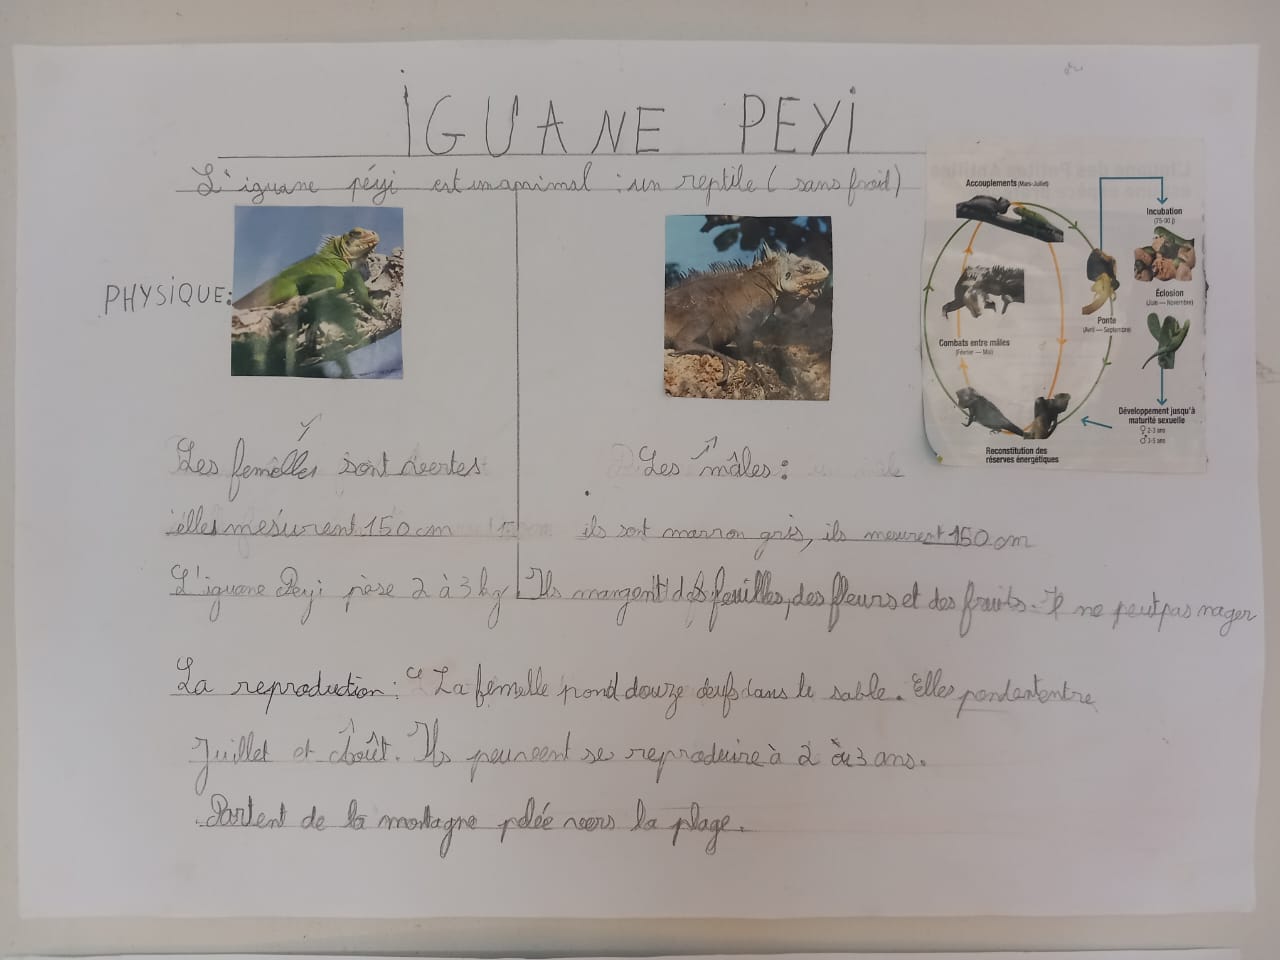 iGUANE PEYi
L'iguane péyi est un animal : un reptile ( sans froid )
PHYSiQUE :
Les femelles sont vertes
elles mesurent 150 cm
Les mâles :
ils sont marron gris, ils meurent 150 cm
L'iguane Peyi pèse 2 à 3 kg Ils mangent des feuilles, des fleurs et des fruits. Il ne peut pas nager
La reproduction : La femelle pond douze œufs dans le sable. Elles pondent entre
Juillet et Août. Ils peuvent se reproduire à 2 à 3 ans.
Partent de la montagne pelée vers la plage.
Accouplements (Mars-Juillet)
Incubation
(75-90 j)
Éclosion
(Juin — Novembre)
Ponte
(Avril — Septembre)
Combats entre mâles
(Février — Mai)
Développement jusqu'à
maturité sexuelle
♀ 2-3 ans
♂ 3-5 ans
Reconstitution des
réserves énergétiques